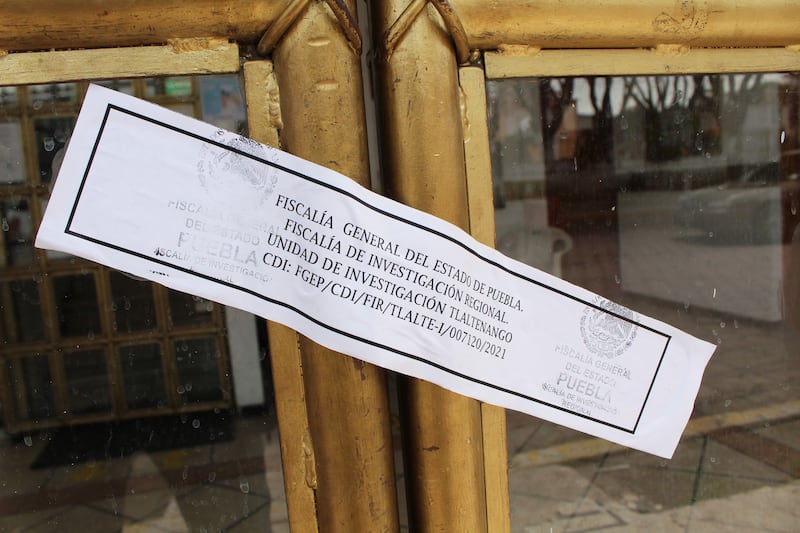 FISCALÍA GENERAL DEL ESTADO DE PUEBLA.
FISCALÍA DE INVESTIGACIÓN REGIONAL.
UNIDAD DE INVESTIGACIÓN TLALTENANGO
CDI: FGEP/CDI/FIR/TLALTE-I/007120/2021
FISCALÍA GENERAL
DEL ESTADO
PUEBLA
FISCALÍA DE INVESTIGACIÓN
FISCALÍA GENERAL
DEL ESTADO
PUEBLA
FISCALÍA DE INVESTIGACIÓN
REGIONAL